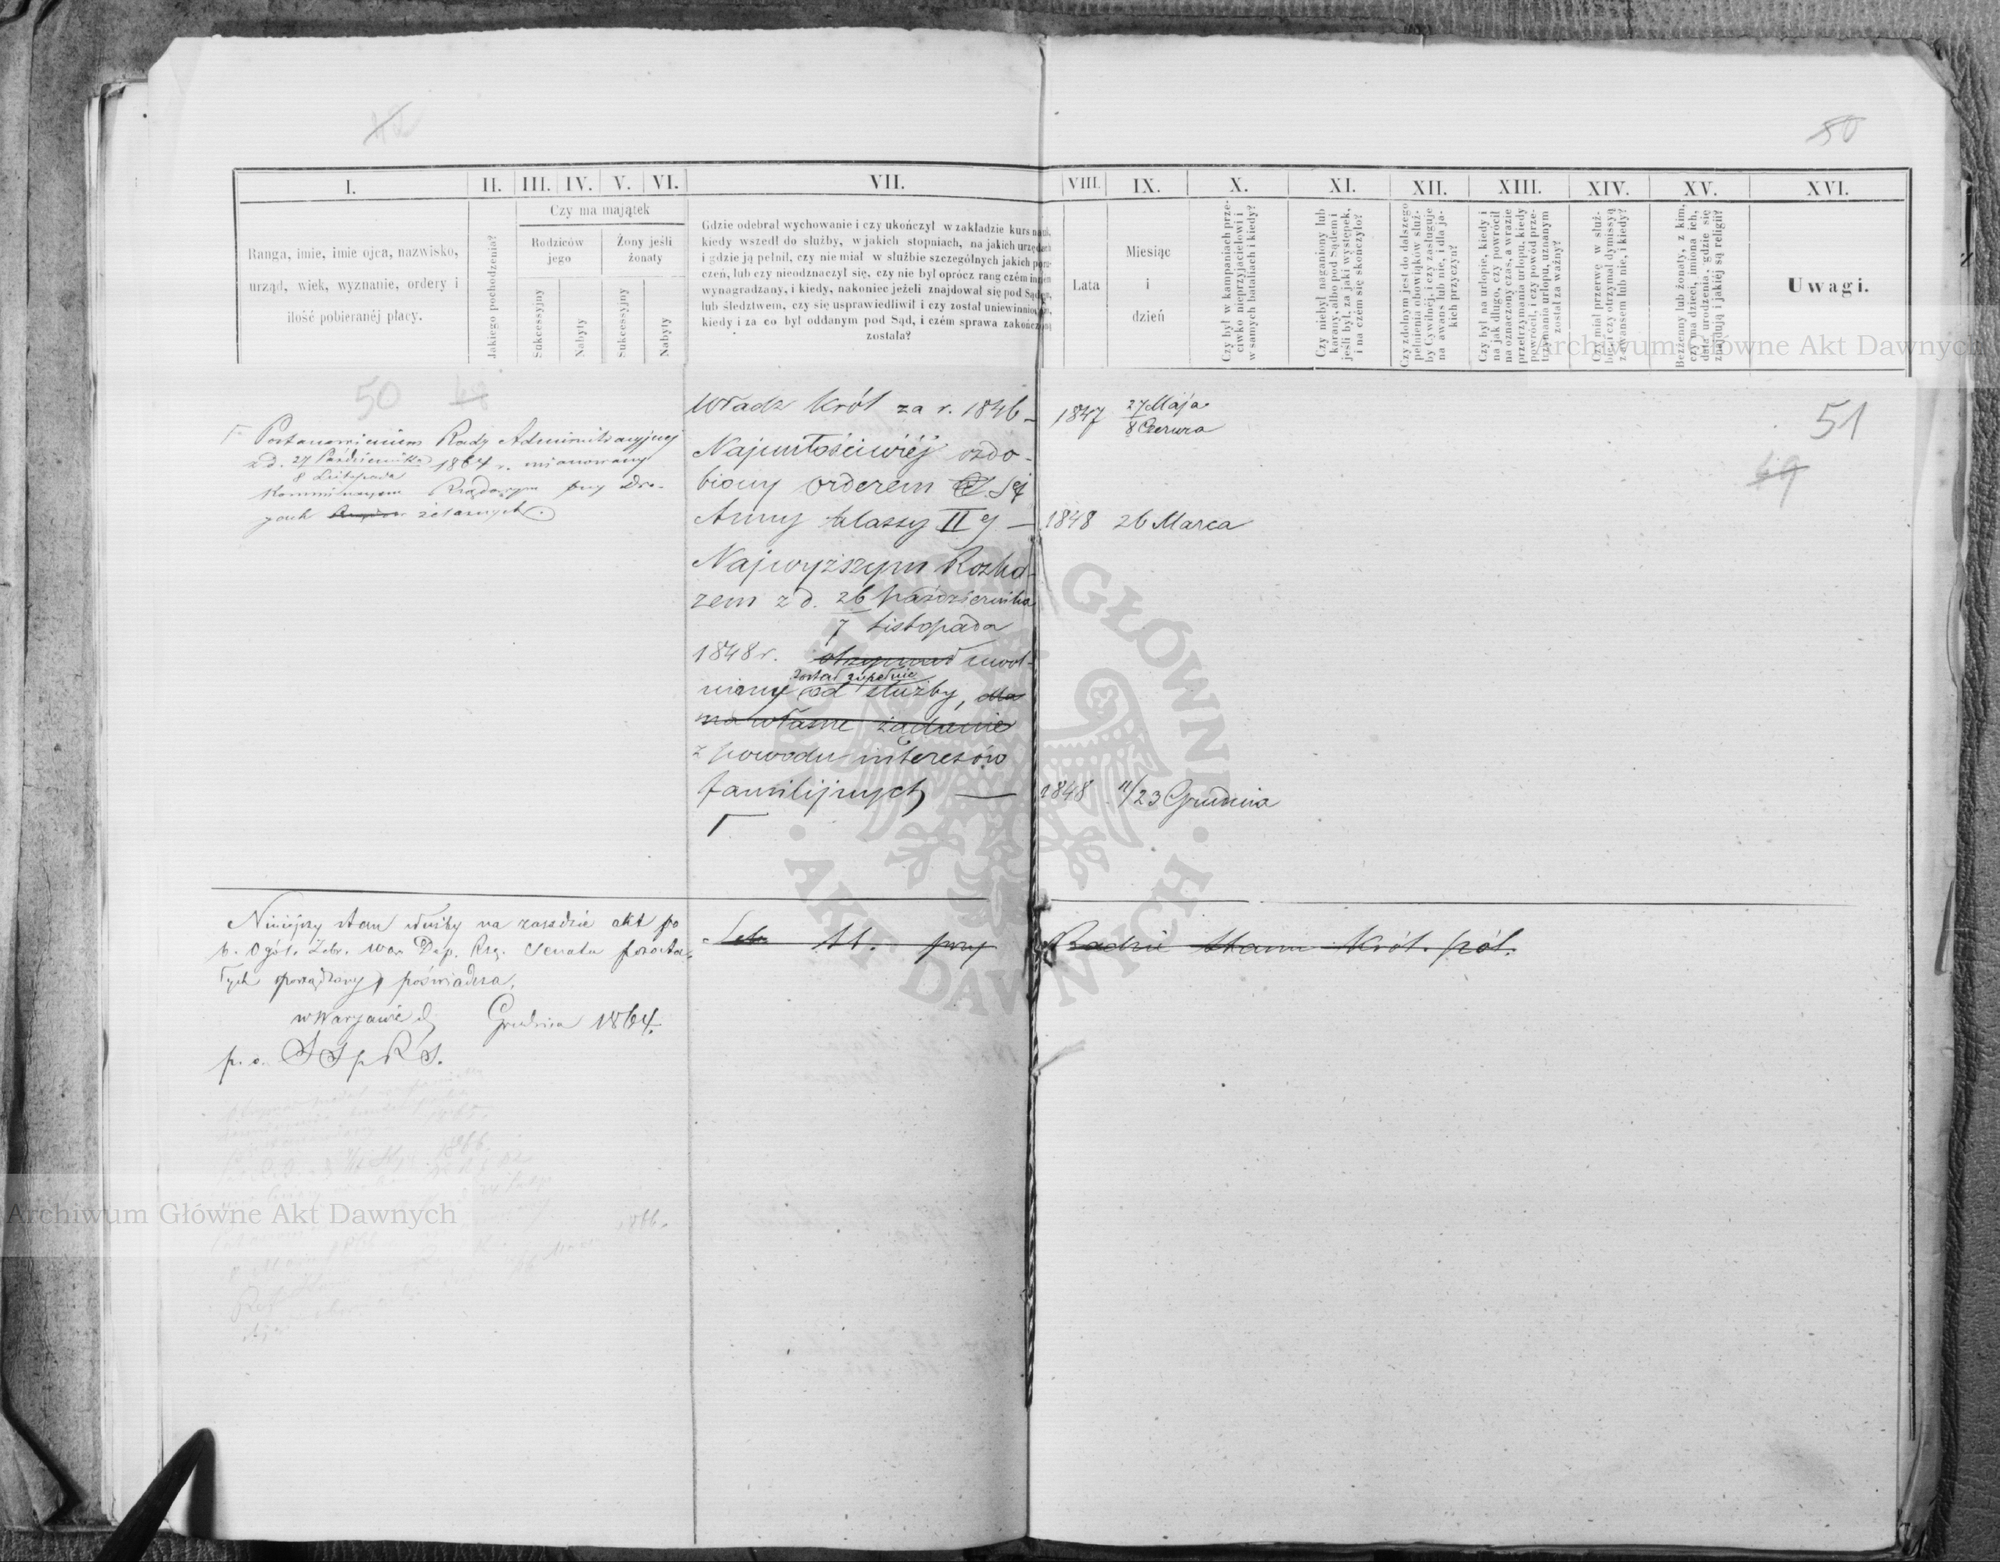 50
I.
II.
III.
IV.
V.
VI.
VII.
VIII.
IX.
X.
XI.
XII.
XIII.
XIV.
XV.
XVI.
Ranga, imie, imie ojca, nazwisko,
urząd, wiek, wyznanie, ordery i
ilość pobieranéj płacy.
Jakiego pochodzenia?
Czy ma majątek
Rodziców
jego
Żony jeśli
żonaty
Sukcessyjny
Nabyty
Sukcessyjny
Nabyty
Gdzie odebrał wychowanie i czy ukończył w zakładzie kurs nauk,
kiedy wszedł do służby, w jakich stopniach, na jakich urzędach
i gdzie ją pełnił, czy nie miał w służbie szczególnych jakich poru-
czeń, lub czy nieodznaczył się, czy nie był oprócz rang czém innem
wynagradzany, i kiedy, nakoniec jeżeli znajdował się pod Sądem,
lub śledztwem, czy się usprawiedliwił i czy został uniewinniony,
kiedy i za co był oddanym pod Sąd, i czém sprawa zakończoną
została?
Lata
Miesiąc
i
dzień
Czy był w kampaniach prze-
ciwko nieprzyjacielowi i
w samych bataliach i kiedy?
Czy niebył naganiony lub
karany, albo pod Sądem i
jeśli był, za jaki występek,
i na czém się skończyło?
Czy zdolnym jest do dalszego
pełnienia obowiązków służ-
by Cywilnéj, i czy zasługuje
na awans lub nie, i dla ja-
kich przyczyn?
Czy był na urlopie, kiedy i
na jak długo, czy powrócił
na oznaczony czas, a w razie
przetrzymania urlopu, kiedy
powrócił, i czy powód prze-
trzymania urlopu, uznanym
został za ważny?
Czy miał przerwę w służ-
bie, i czy otrzymał dymissyą
z awansem lub nie, i kiedy?
Bezżenny lub żonaty, z kim,
czy ma dzieci, imiona ich,
data urodzenia, gdzie się
znajdują i jakiéj są religii?
Uwagi.
50
Postanowieniem Rady Administracyjnej
z d. 27 Października 1864 r. mianowany
8 Listopada
Kommissarzem Rządowym przy Dro-
gach żelaznych.
Władz Król za r. 1846 –
1847 27 Maja
8 Czerwca
51
Najmiłościwiéj ozdo-
biony orderem Sej
Anny klassy II ej —
1848 26 Marca
Najwyższym Rozka-
zem z d. 26 Października
7 Listopada
1848 r. otrzymał uwol-
niony został zupełnie od służby,
na własne żądanie
z powodu interesów
familijnych —
1848 11/23 Grudnia
Niniejszy stan służby na zasadzie akt po
b. Ogól. Zebr. War. Dep. Rzą. Senatu pozosta-
łych sporządzony poświadcza,
w Warszawie d. Grudnia 1864.
p. o. S S p R S.
11. przy Radzie Stanu Król. pol.
Archiwum Główne Akt Dawnych
Archiwum Główne Akt Dawnych
ARCHIWUM GŁÓWNE · AKT DAWNYCH ·